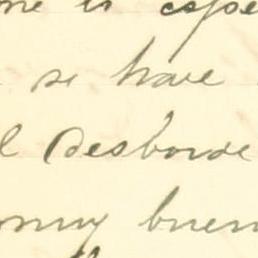 me es espe
se hace
l desborde
muy buen